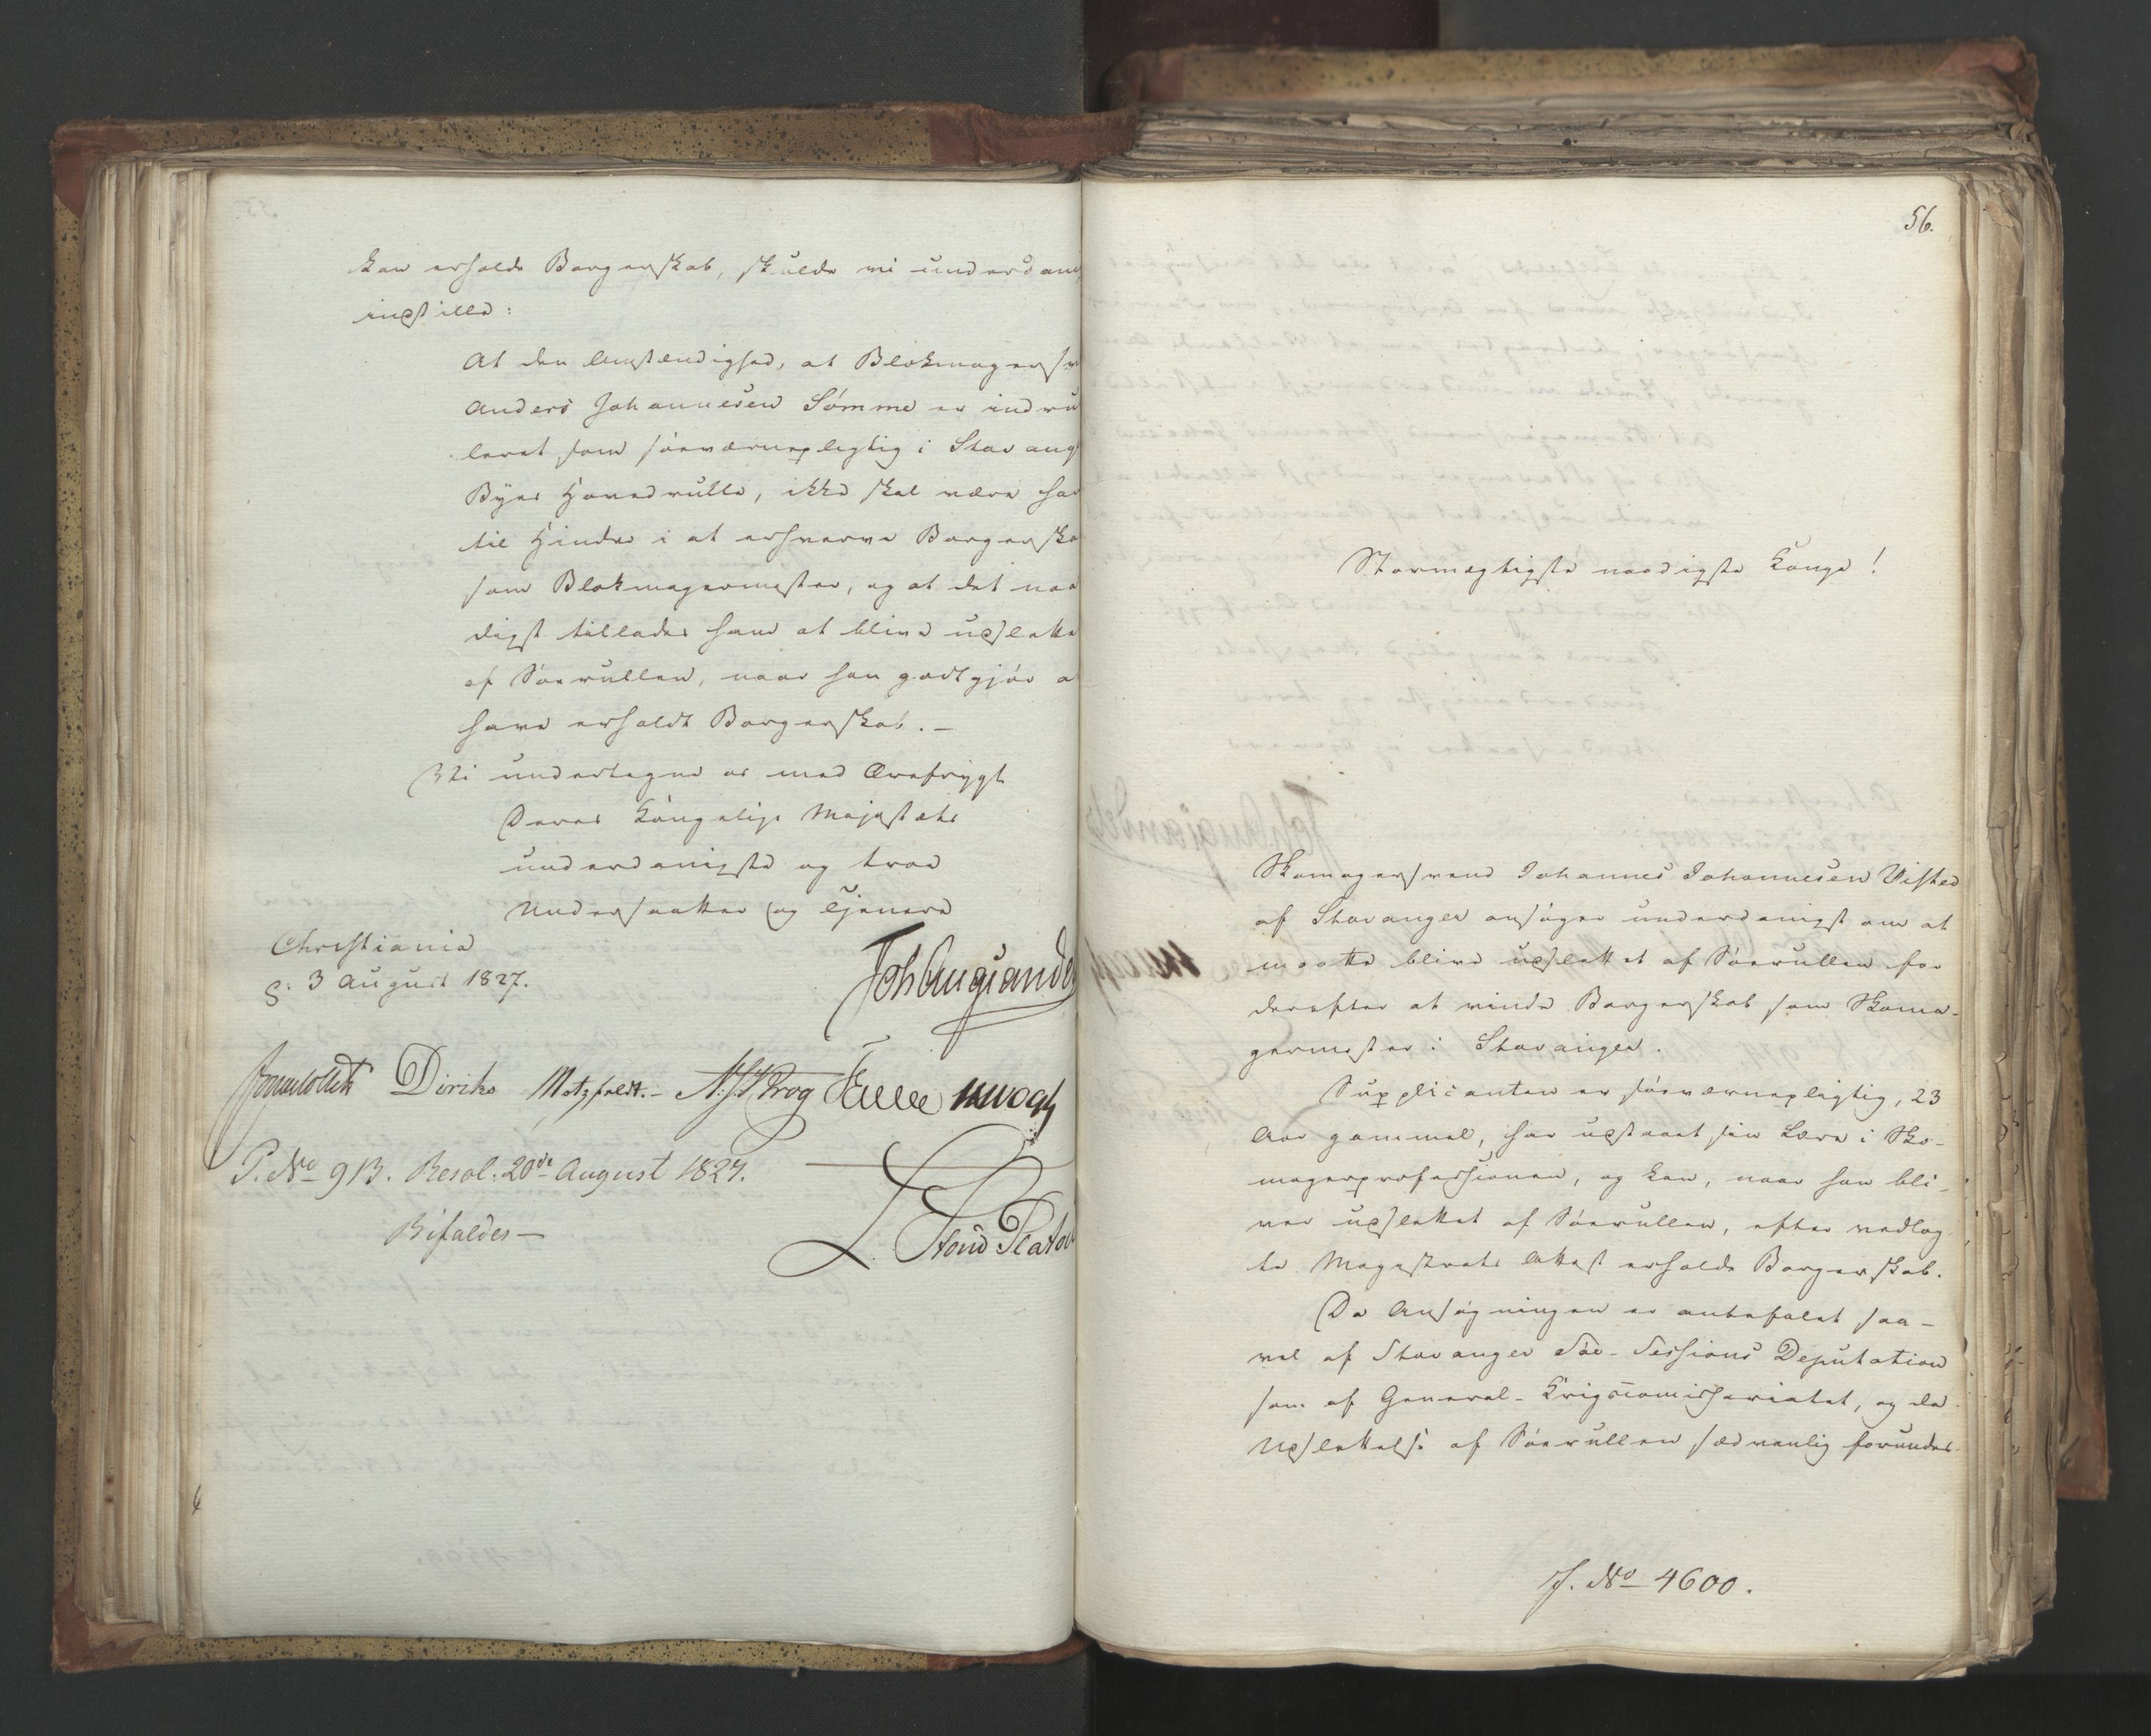 kan erholde Borgerskab, skulde vi underdan
indstille:
At den Omstændighed, at Blokmagersv
Anders Johannesen Sömme er indrul
leret som søeværnepligtig i Stavang
Byes Hovedrulle, ikke skal være ha
til Hinder i at erhverve Borgerska
som Blokmagermester, og at det naa
digst tillades ham at blive udslette
af Söerullen, naar han godtgjör a
have erholdt Borgerskab. —
Vi undertegne os med Ærefrygt
Deres Kongelige Majestæts
underdanigste og troe
Undersaatter og Tjenere
Christiania
d: 3 August 1827.
Joh Aug Sande
Diriks Motzfeldt. — Krog Fasting
P. No 913. Resol. 20de August 1827.
Bifaldes —
56.
Stormægtigste naadigste Konge!
Skomagersvend Johannes Johannesen Visted
af Stavanger ansöger underdanigst om at
maatte blive udslettet af Söerullen for
derefter at vinde Borgerskab som Skoma-
germester i Stavanger.
Supplicanten er söeværnepligtig, 23
Aar gammel, har udstaaet sin Lære i Sko-
magerprofessionen, og kan, naar han bli-
ver udslettet af Söerullen, efter vedlag
te Magistrats Attest erholde Borgerskab.
Da Ansögningen er anbefalet saa-
vel af Stavanger Söe-Sessions Deputation
som af General-Krigscomissariatet, og da
Udslettelse af Söerullen sædvanlig forundes
J. No 4600.